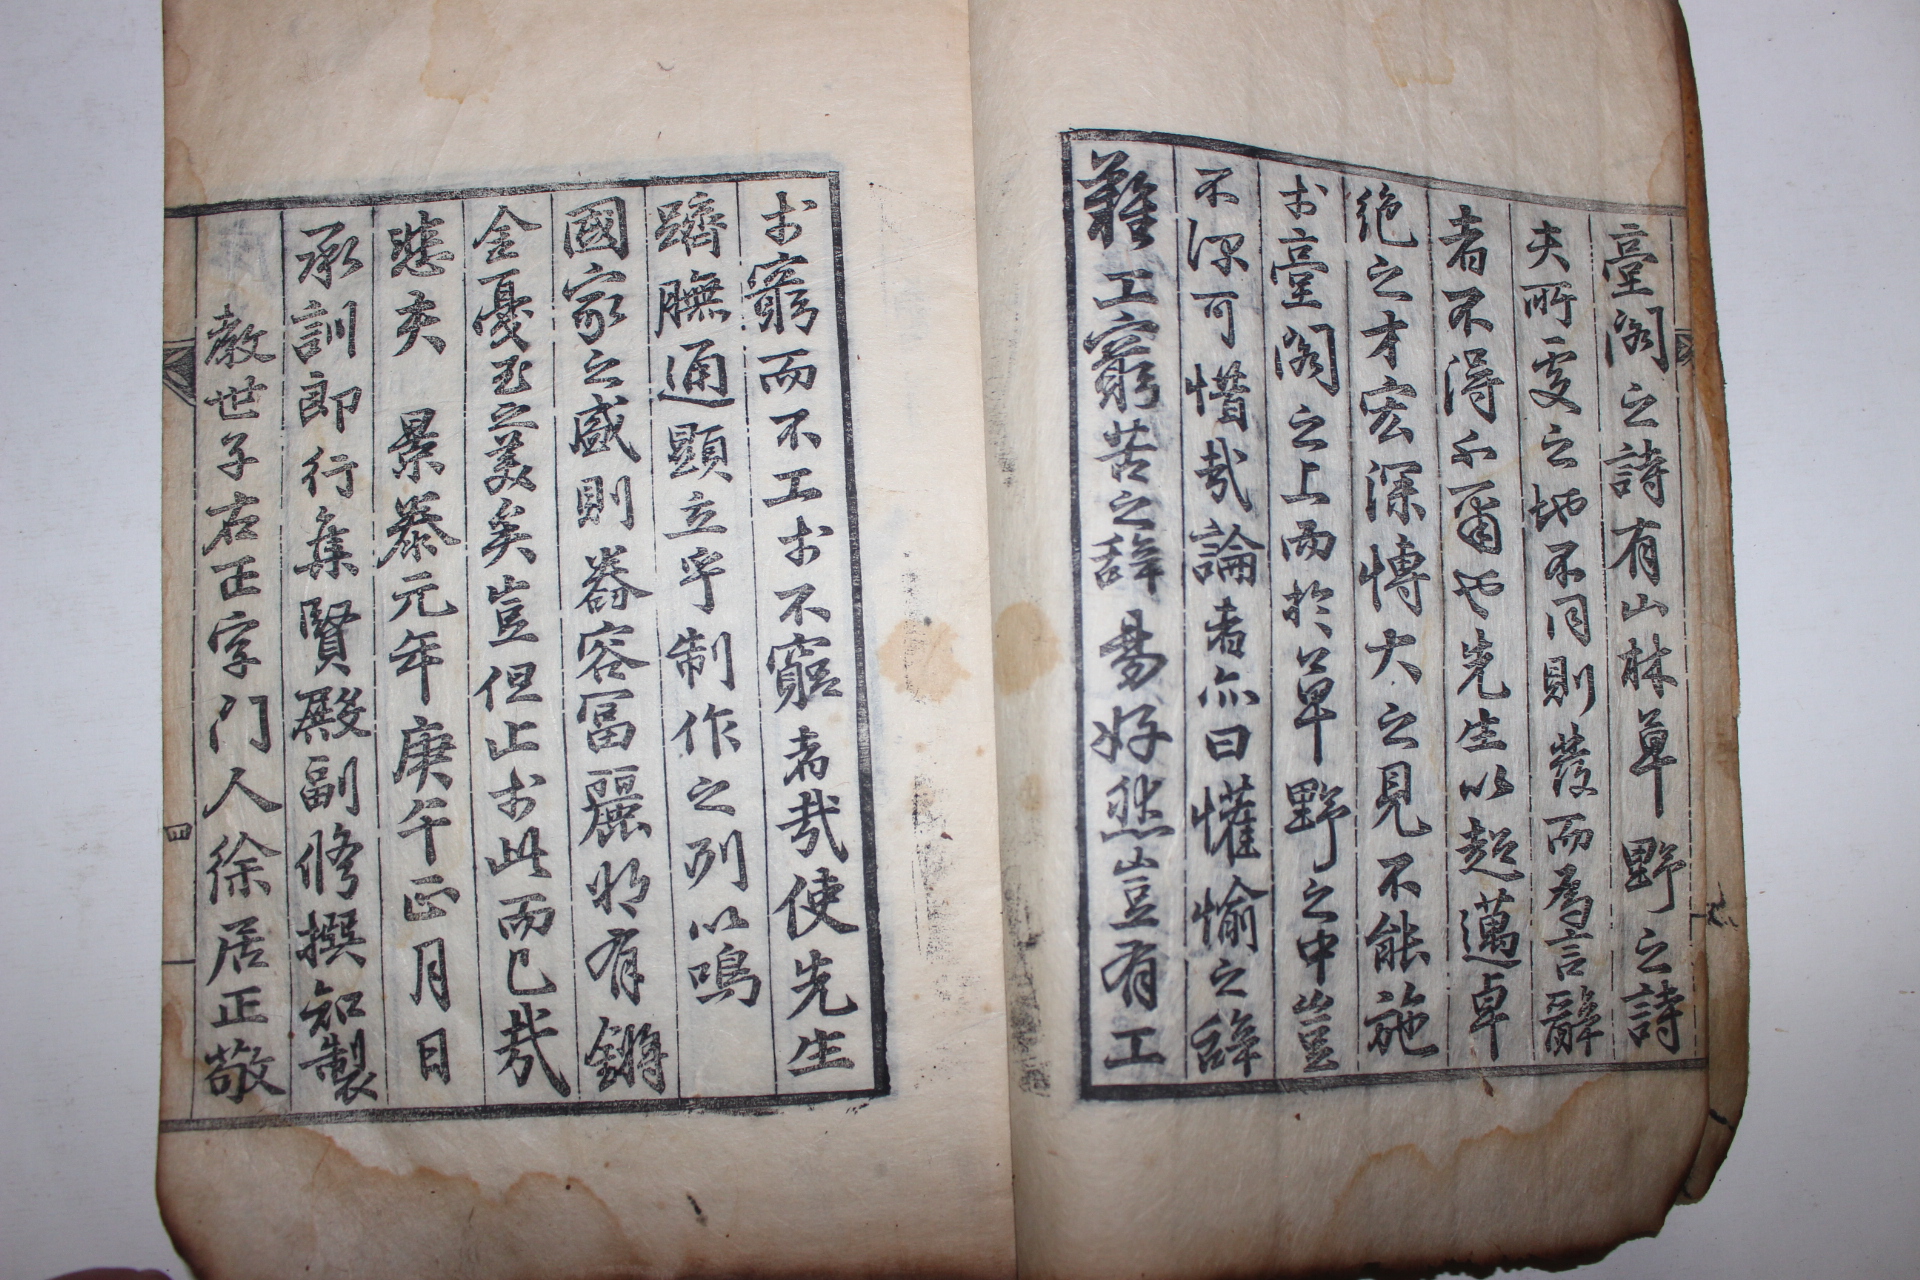 臺閣之詩有山林草野之詩
夫所處之地不同則發而爲言辭
者不得不爾也先生以超邁卓
絶之才宏深博大之見不能施
於臺閣之上而於草野之中豈
不深可惜哉論者亦曰懽愉之辭
難工窮苦之辭易好然豈有工
於窮而不工於不窮者哉使先生
躋膴通顯立乎制作之列以鳴
國家之盛則舂容冨麗将有鏘
金戛玉之美矣豈但止於此而已哉
悲夫 景泰元年庚午正月日
承訓郎行集賢殿副修撰知製
教世子右正字門人徐居正敬
四